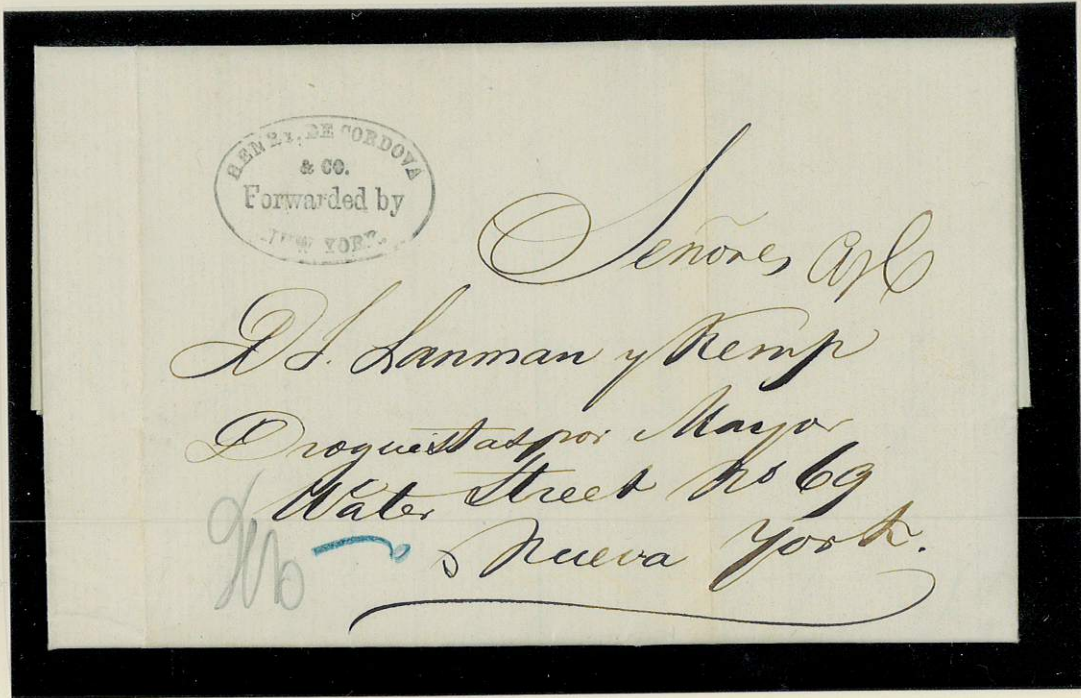 HENRY. DE CORDOVA
& CO.
Forwarded by
NEW YORK.
Señores
D. S. Lanman y Kemp
Droguistas por Mayor
Water Street No 69
Nueva York.